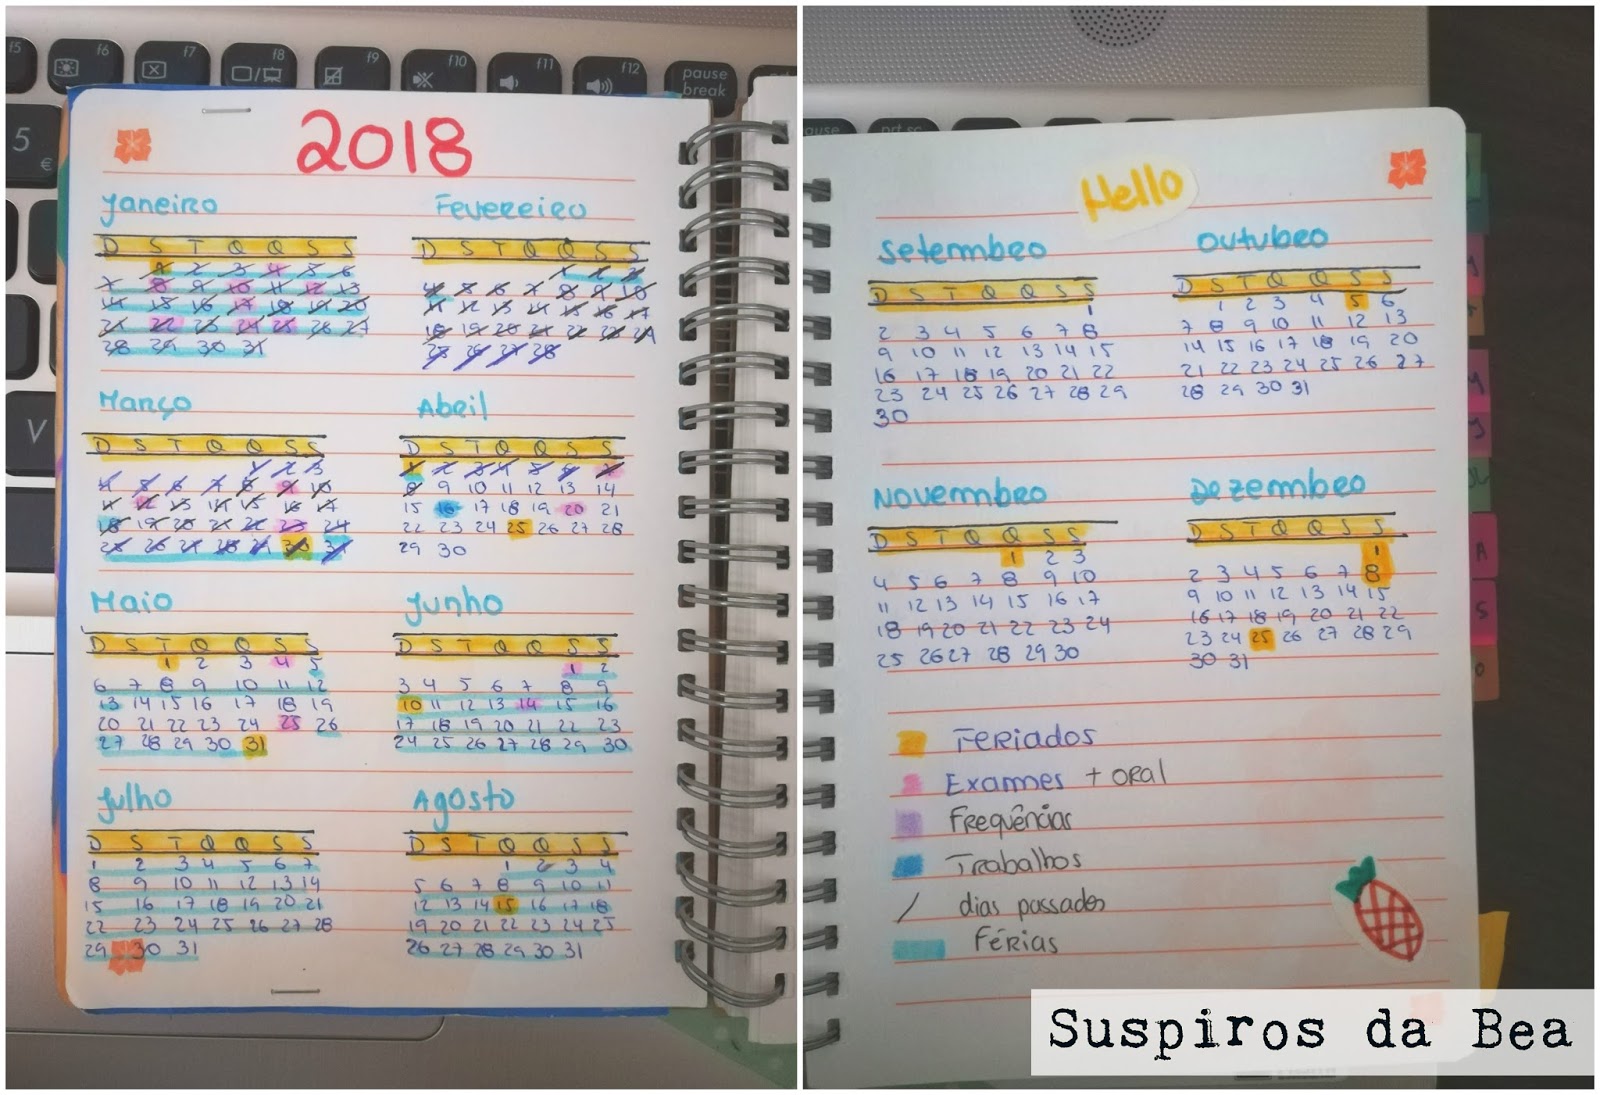 f5 f6 f7 f8 f9 f10 f11 f12 pause break
5 €
V
2018
Janeiro
D S T Q Q S S
1 2 3 4 5 6
7 8 9 10 11 12 13
14 15 16 17 18 19 20
21 22 23 24 25 26 27
28 29 30 31
Fevereiro
D S T Q Q S S
1 2 3
4 5 6 7 8 9 10
11 12 13 14 15 16 17
18 19 20 21 22 23 24
25 26 27 28
Março
D S T Q Q S S
1 2 3
4 5 6 7 8 9 10
11 12 13 14 15 16 17
18 19 20 21 22 23 24
25 26 27 28 29 30 31
Abril
D S T Q Q S S
1 2 3 4 5 6 7
8 9 10 11 12 13 14
15 16 17 18 19 20 21
22 23 24 25 26 27 28
29 30
Maio
D S T Q Q S S
1 2 3 4 5
6 7 8 9 10 11 12
13 14 15 16 17 18 19
20 21 22 23 24 25 26
27 28 29 30 31
Junho
D S T Q Q S S
1 2
3 4 5 6 7 8 9
10 11 12 13 14 15 16
17 18 19 20 21 22 23
24 25 26 27 28 29 30
Julho
D S T Q Q S S
1 2 3 4 5 6 7
8 9 10 11 12 13 14
15 16 17 18 19 20 21
22 23 24 25 26 27 28
29 30 31
Agosto
D S T Q Q S S
1 2 3 4
5 6 7 8 9 10 11
12 13 14 15 16 17 18
19 20 21 22 23 24 25
26 27 28 29 30 31
Hello
Setembro
D S T Q Q S S
1
2 3 4 5 6 7 8
9 10 11 12 13 14 15
16 17 18 19 20 21 22
23 24 25 26 27 28 29
30
Outubro
D S T Q Q S S
1 2 3 4 5 6
7 8 9 10 11 12 13
14 15 16 17 18 19 20
21 22 23 24 25 26 27
28 29 30 31
Novembro
D S T Q Q S S
1 2 3
4 5 6 7 8 9 10
11 12 13 14 15 16 17
18 19 20 21 22 23 24
25 26 27 28 29 30
Dezembro
D S T Q Q S S
1
2 3 4 5 6 7 8
9 10 11 12 13 14 15
16 17 18 19 20 21 22
23 24 25 26 27 28 29
30 31
Feriados
Exames + oral
Frequências
Trabalhos
/ dias passados
Férias
A
S
O
Suspiros da Bea